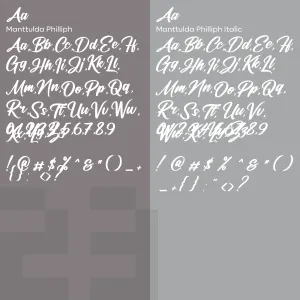 Aa
Manttulda Philliph
Aa. Bb. Cc. Dd. Ee. Ff.
Gg. Hh. Ii. Jj. Kk. Ll.
Mm. Nn. Oo. Pp. Qq.
Rr. Ss. Tt. Uu. Vv. Ww.
! @ # $ % ^ & * ( ) _ +
Aa
Manttulda Philliph Italic
Aa. Bb. Cc. Dd. Ee. Ff.
Gg. Hh. Ii. Jj. Kk. Ll.
Mm. Nn. Oo. Pp. Qq.
Rr. Ss. Tt. Uu. Vv. Ww.
! @ # $ % ^ & * ( )